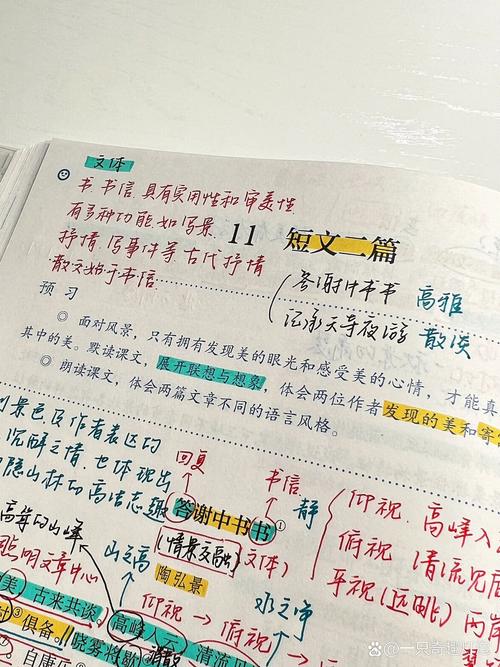 文体
书 书信 具有实用性和审美性
有多种功能,如写景
抒情、写事件等 古代抒情
散文始于书信
11 短文二篇
答谢中书书 高雅
记承天寺夜游 散淡
预习
◎ 面对风景,只有拥有发现美的眼光和感受美的心情,才能真
其中的美。默读课文,展开联想与想象,体会两位作者发现的美和寄
◎ 朗读课文,体会两篇文章不同的语言风格。
景色及作者表达的
沉醉之情,也体现出
隐山林的高洁志趣
回复
书信
答谢中书书①
静
(情景交融)
文体)
陶弘景
高耸的山峰
点明文章中心
山之高
仰视 → 俯视 →
水之净
仰视 高峰入
俯视 清流见
平视(远眺) 两岸
美,古来共谈。
高峰入云,清流
③俱备。晓雾将歇
自康乐
@一只奇趣